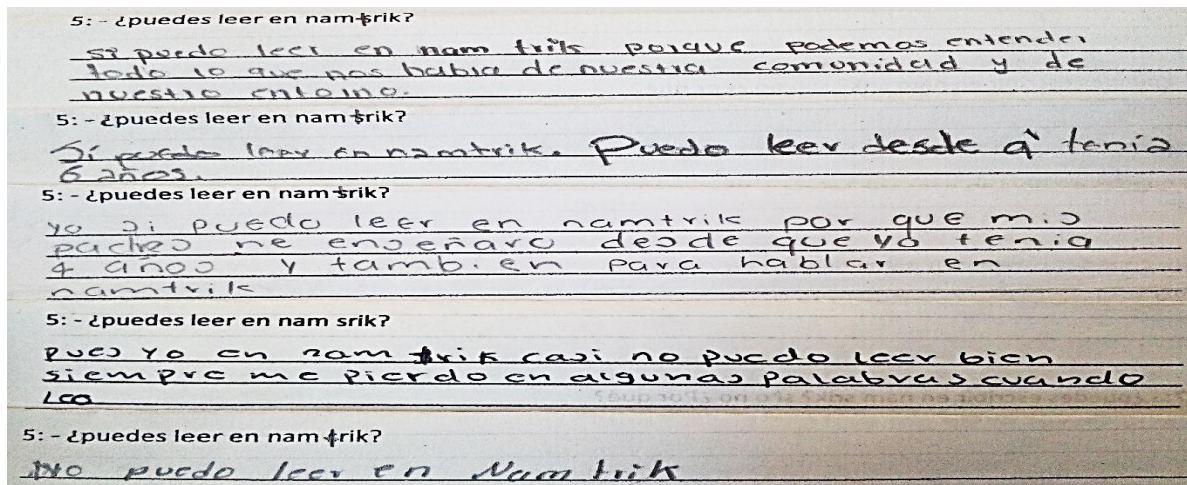 5: - ¿puedes leer en nam trik?
si puedo leer en nam trik porque podemos entender
todo lo que nos habla de nuestra comunidad y de
nuestro entorno.
5: - ¿puedes leer en nam trik?
Sí puedo leer en namtrik. Puedo leer desde q' tenía
6 años.
5: - ¿puedes leer en nam trik?
yo si puedo leer en namtrik por que mis
padres me enseñaro desde que yo tenia
4 años y tambien para hablar en
namtrik
5: - ¿puedes leer en nam srik?
pues yo en nam trik casi no puedo leer bien
siempre me pierdo en algunas palabras cuando
leo
5: - ¿puedes leer en nam trik?
No puedo leer en Namtrik